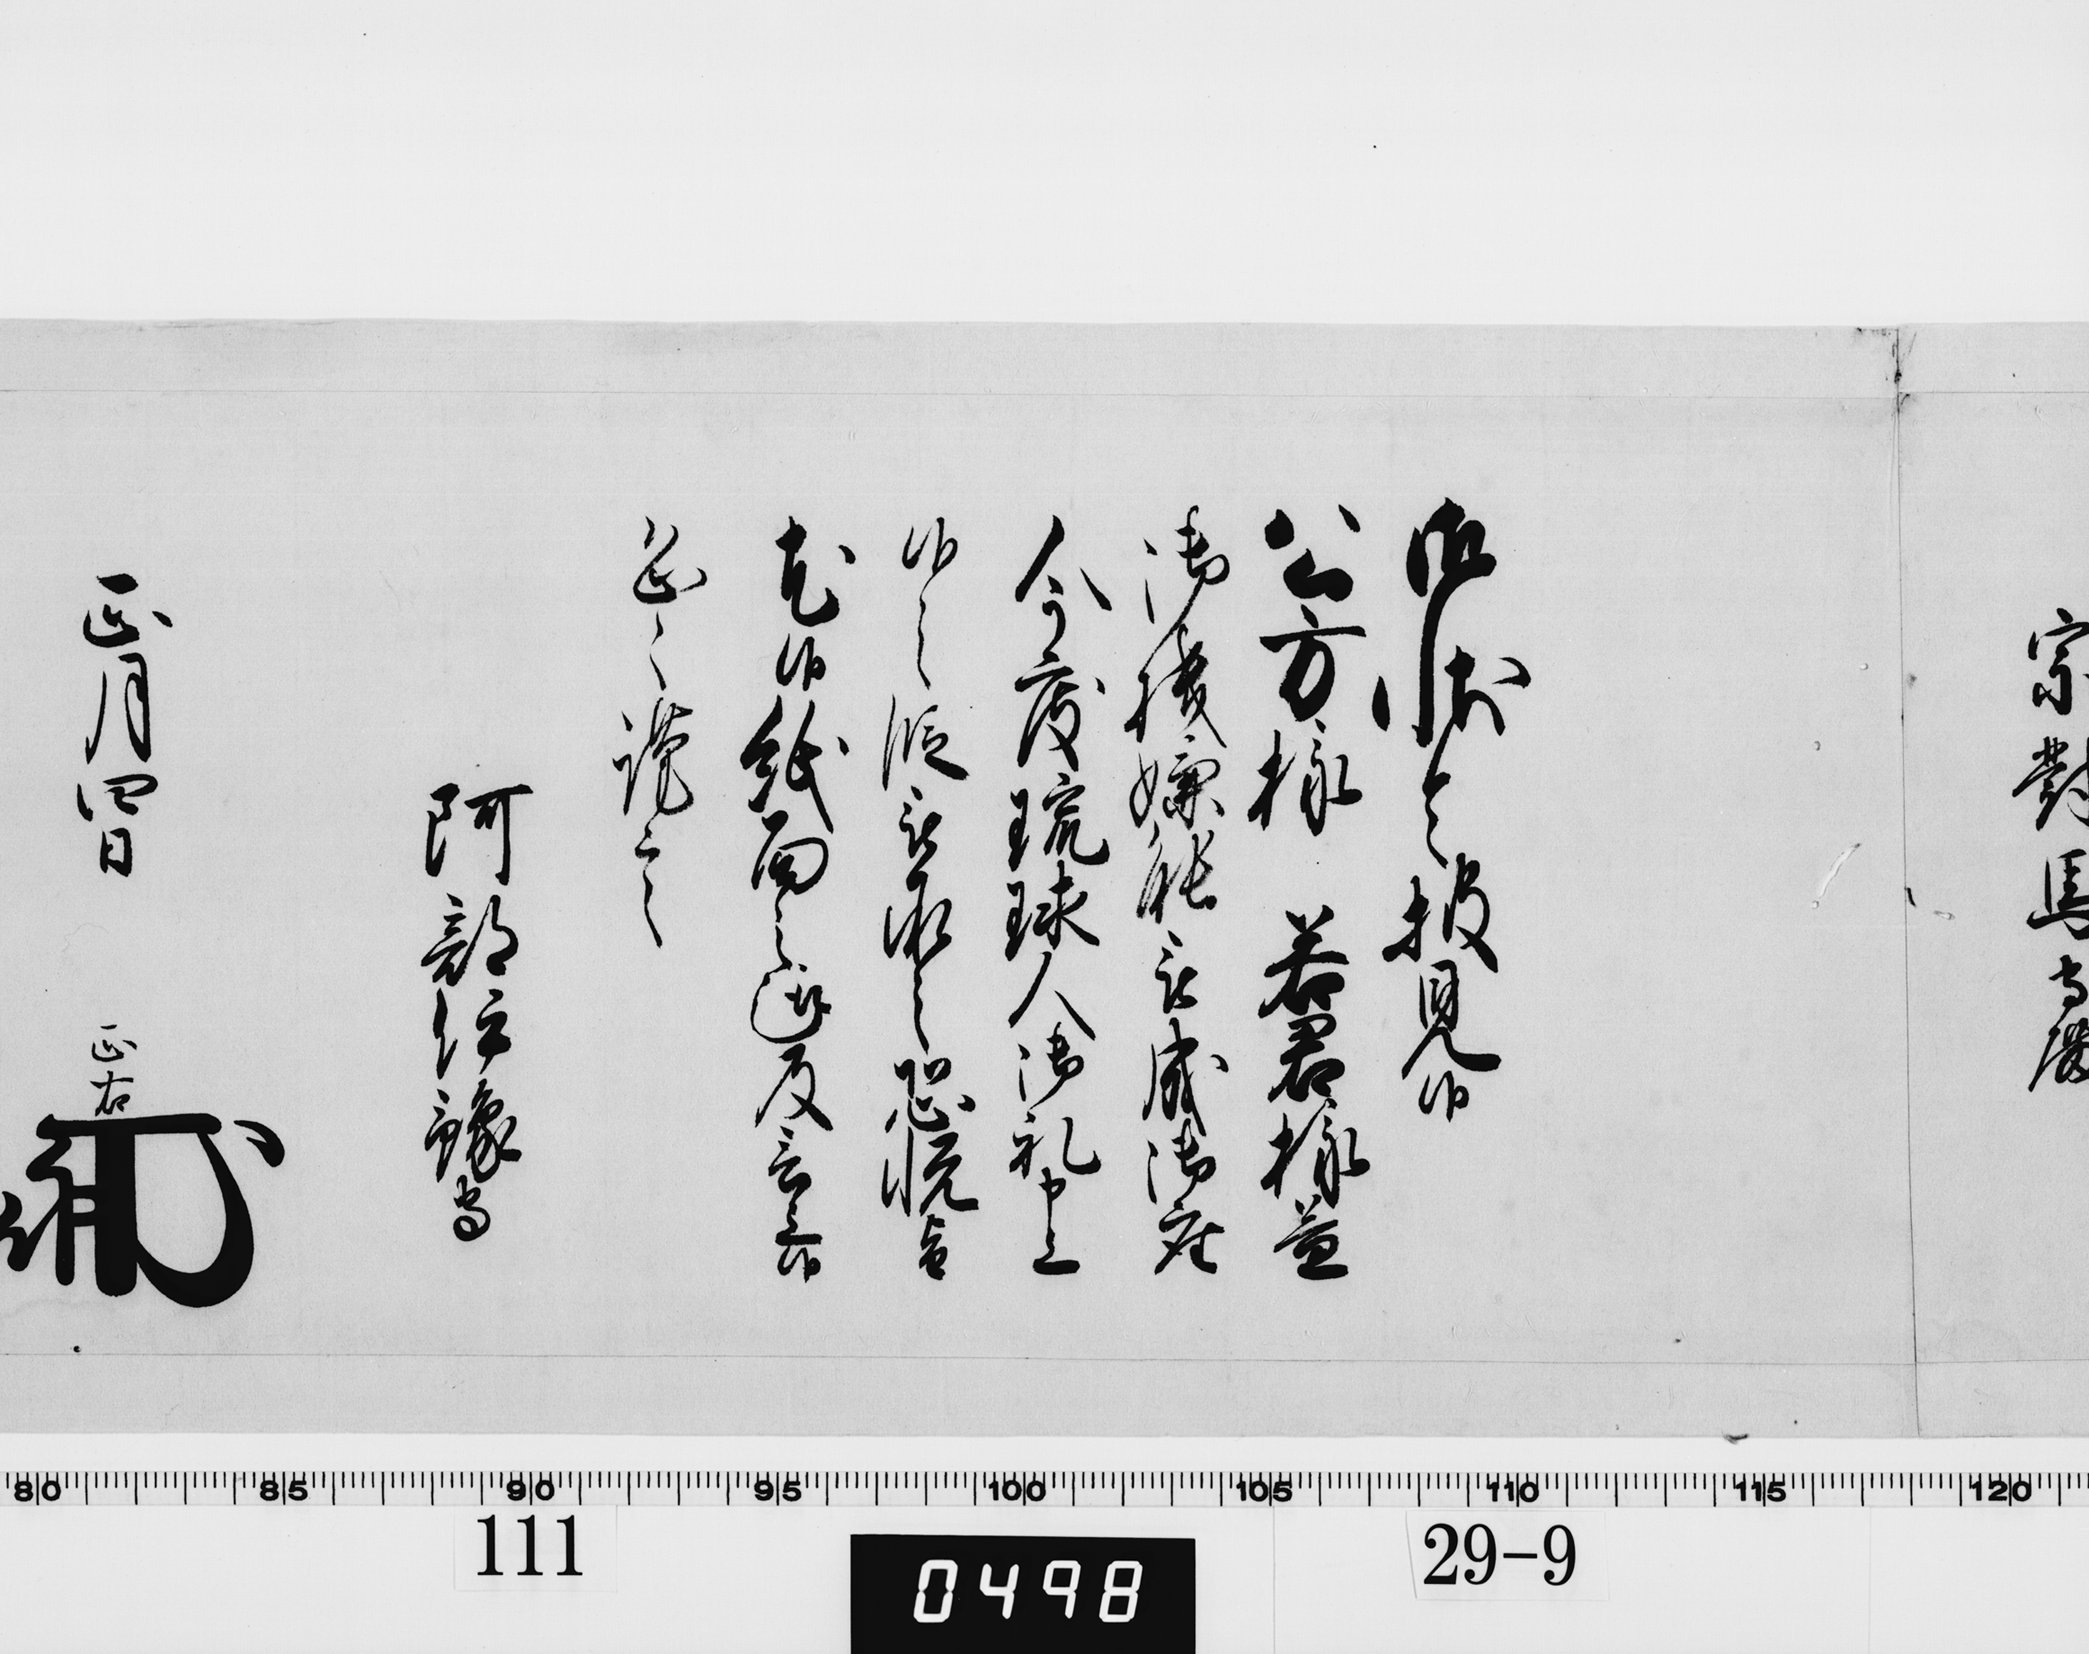 宗對馬守殿
御状令披見候
公方様 若君様益
御機嫌能被成御座
今度琉球人御礼申上
候之段被承之恐悦旨
尤候紙面之趣及言上候
恐々謹言
阿部伊豫守
正月四日 正右
80 85 90 95 100 105 110 115 120
111 29-9
0498